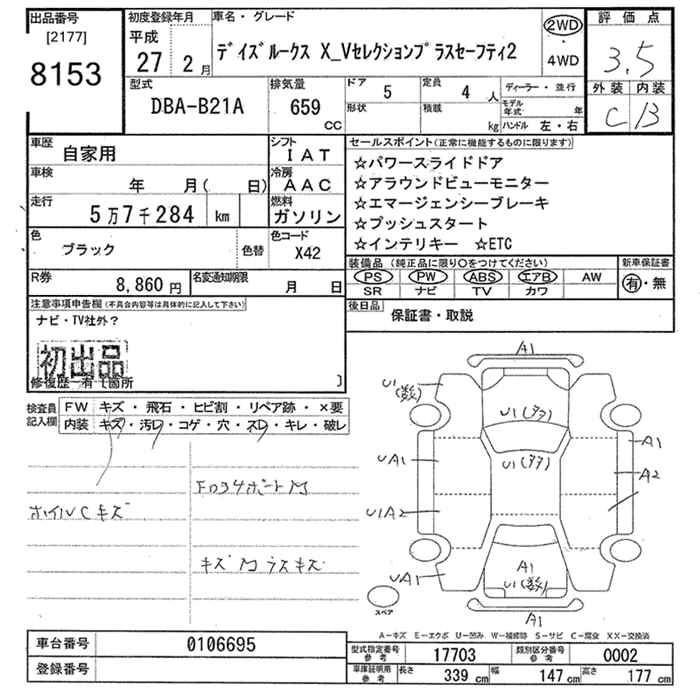 出品番号
[2177]
8153
初度登録年月
平成
27 2月
車名・グレード
デイズルークス X_Vセレクションプラスセーフティ2
2WD
・
4WD
評価点
3.5
外装 内装
C B
型式
DBA-B21A
排気量
659
CC
ドア
5
定員
4 人
形状
積載
kg
ディーラー・並行
モデル年式 年
ハンドル 左・右
車歴
自家用
シフト
IAT
車検
年 月( 日)
冷房
AAC
走行
5万7千284 km
燃料
ガソリン
色
ブラック
色替
色コード
X42
R券
8,860円
名変通知期限
月 日
セールスポイント(正常に機能するものに限ります)
☆パワースライドドア
☆アラウンドビューモニター
☆エマージェンシーブレーキ
☆プッシュスタート
☆インテリキー ☆ETC
装備品(純正品に限り○をつけてください)
PS PW ABS エアB AW
SR ナビ TV カワ
新車保証書
有・無
後日品
保証書・取説
注意事項申告欄(不具合内容等は具体的に記入して下さい)
ナビ・TV社外?
初出品
修復歴-有 [箇所 ]
検査員記入欄
FW キズ・飛石・ヒビ割・リペア跡・×要
内装 キズ・汚レ・コゲ・穴・スレ・キレ・破レ
ホイルCキズ
キズ M ラスキズ
A1
U1(数)
U1(タタ)
U1(タタ)
UA1
A1
A2
U1A2
UA1
A1
U1(数)
A1
スペア
A-キズ E-エクボ U-凹み W-補修跡 S-サビ C-腐食 XX-交換済
車台番号
0106695
登録番号
型式指定番号 参考
17703
類別区分番号 参考
0002
車庫証明用 参考
長さ 339 cm 幅 147 cm 高さ 177 cm